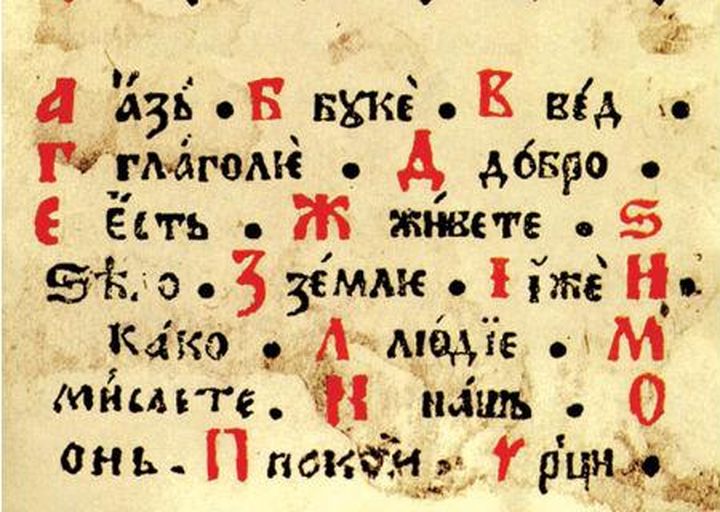 А а́зъ • Б бꙋкѐ • В ве́д •
Г гла́голѥ • Д до́бро •
Е є҆́сть • Ж жи́вете • Ѕ
ѕѣ о • З зе́млѥ • І і҆́жѐ Н •
ка́ко • Л лю́дїе • М
ми́слете • Н на́шь • О
онь • П поко́и • Ч рци •